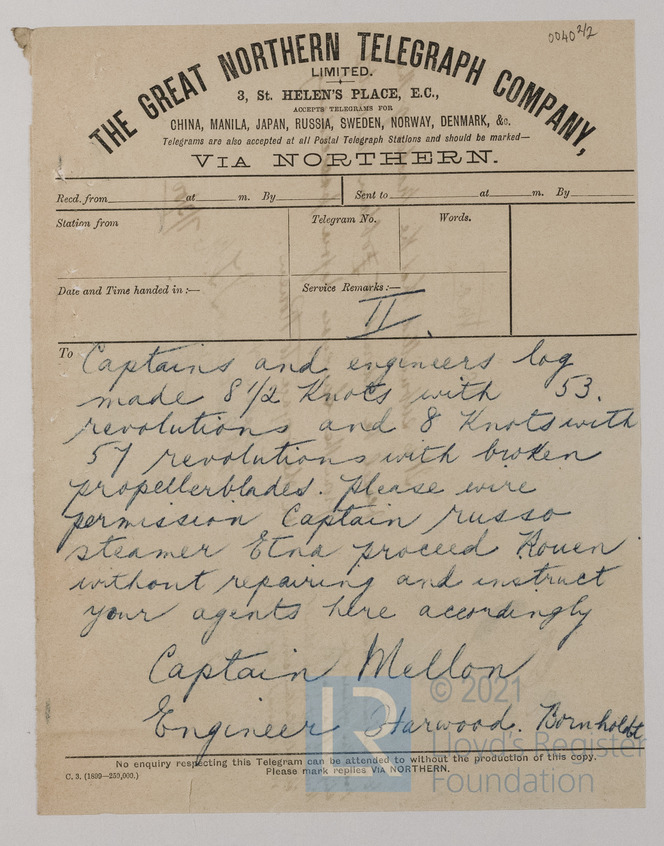 0040 2/2
THE GREAT NORTHERN TELEGRAPH COMPANY,
LIMITED.
3, St. HELEN'S PLACE, E.C.,
ACCEPTS TELEGRAMS FOR
CHINA, MANILA, JAPAN, RUSSIA, SWEDEN, NORWAY, DENMARK, &c.
Telegrams are also accepted at all Postal Telegraph Stations and should be marked—
VIA NORTHERN.
Recd. from at m. By Sent to at m. By
Station from Telegram No. Words.
Date and Time handed in :— Service Remarks :—
II.
To Captains and engineers log
made 8 1/2 Knots with 53.
revolutions and 8 Knots with
57 revolutions with broken
propellerblades. please wire
permission Captain russo
steamer Etna proceed Rouen
without repairing and instruct
your agents here accordingly
Captain Mellon
Engineer Harwood. Bornholdt
© 2021
Lloyd's Register
Foundation
No enquiry respecting this Telegram can be attended to without the production of this copy.
Please mark replies VIA NORTHERN.
C. 3. (1899—250,000.)